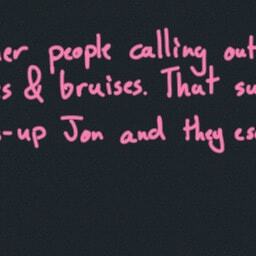 er people calling out
s & bruises. That su
-up Jon and they es